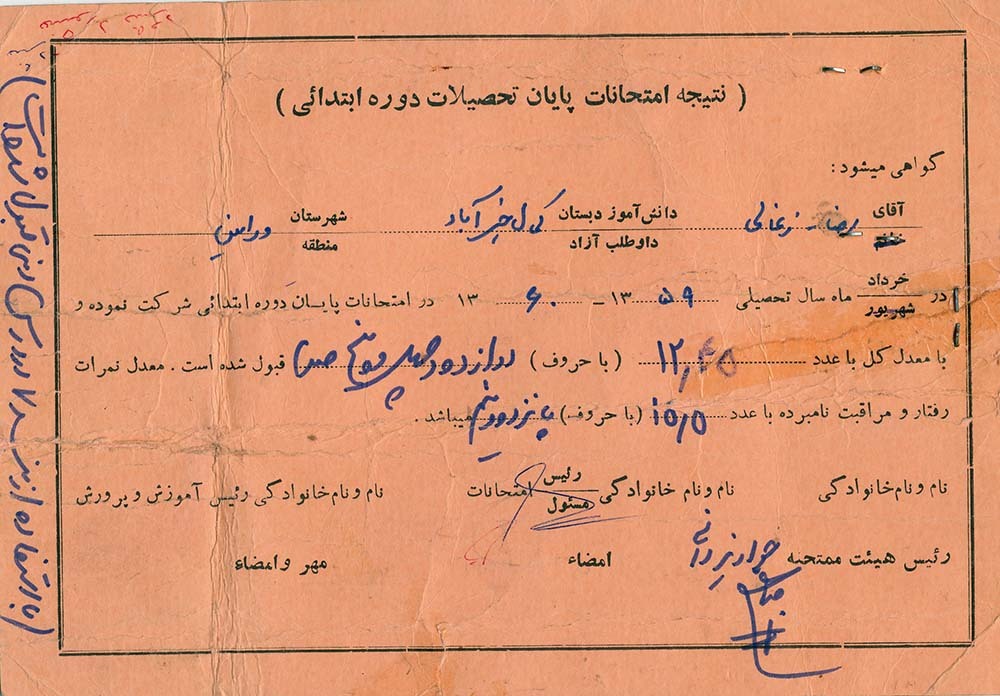 ( نتیجه امتحانات پایان تحصیلات دوره ابتدائی )
گواهی میشود:
آقای خانم رضا زنمالی دانش‌آموز دبستان داوطلب آزاد خیرآباد شهرستان منطقه ورامین
در خرداد شهریور ماه سال تحصیلی ۵۹ ۱۳ – ۶۰ ۱۳ در امتحانات پایان دوره ابتدائی شرکت نموده و
با معدل کل با عدد ۱۲,۴۵ ( با حروف ) دوازده و چهل و پنج صدم قبول شده است . معدل نمرات
رفتار و مراقبت نامبرده با عدد ۱۵,۵ (با حروف) پانزده و نیم میباشد .
نام و نام خانوادگی نام و نام خانوادگی رئیس مسئول امتحانات نام و نام خانوادگی رئیس آموزش و پرورش
رئیس هیئت ممتحنه امضاء مهر و امضاء
جواد
(با استفاده از تبصره ۷ قبول شده است)